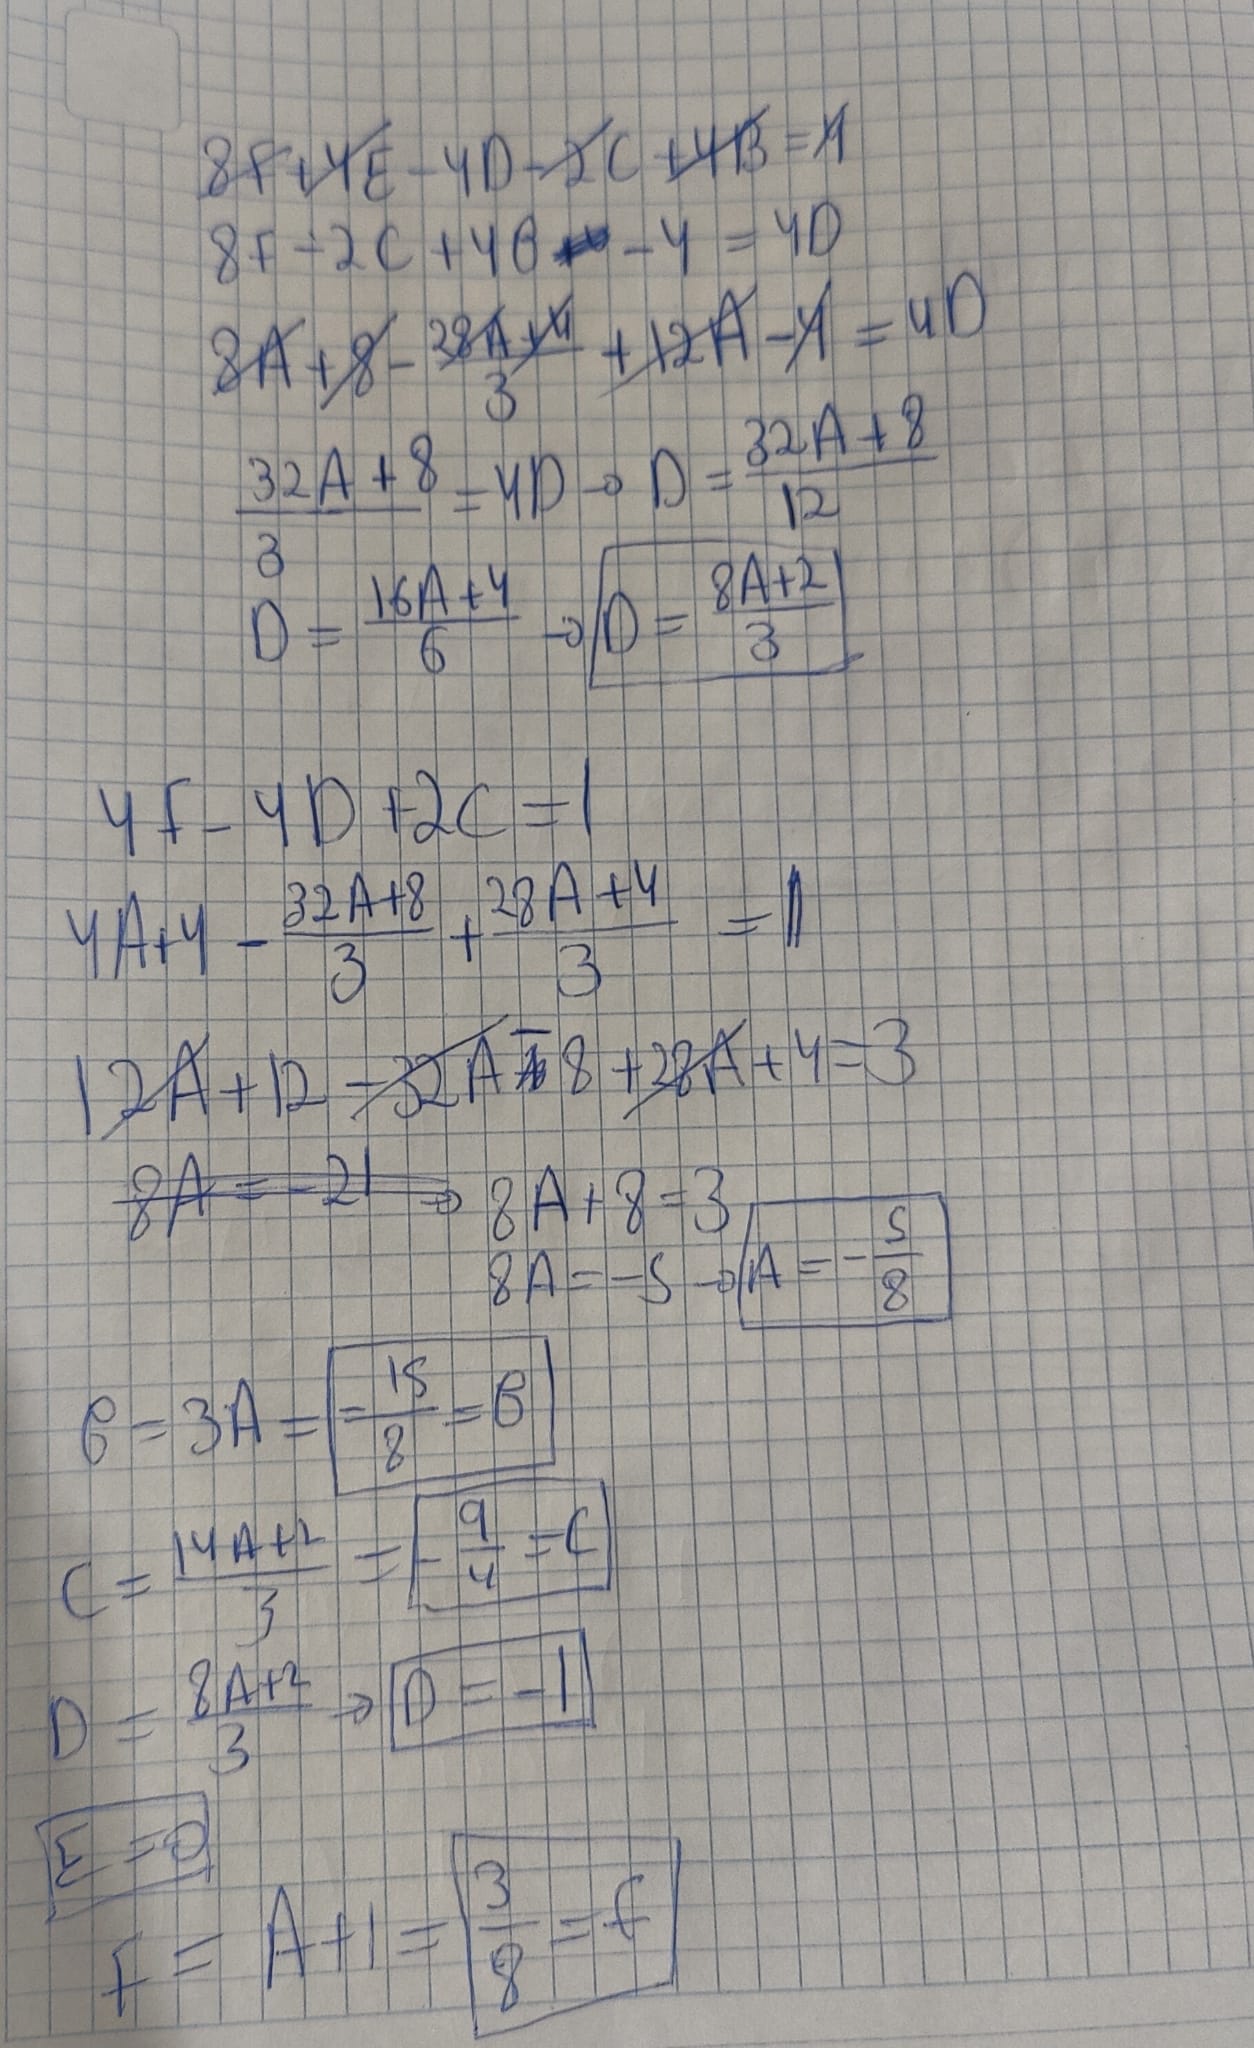 8F+4E-4D-2C+4B=4
8F-2C+4B-4=4D
8A+8-(28A+4)/3+12A-4=4D
(32A+8)/3=4D→D=(32A+8)/12
D=(16A+4)/6→D=(8A+2)/3
4F-4D+2C=1
4A+4-(32A+8)/3+(28A+4)/3=1
12A+12-32A-8+28A+4=3
8A=-21→8A+8=3
8A=-5→A=-5/8
B=3A=-15/8=B
C=(14A+2)/3=-9/4=C
D=(8A+2)/3→D=-1
E=0
F=A+1=3/8=F